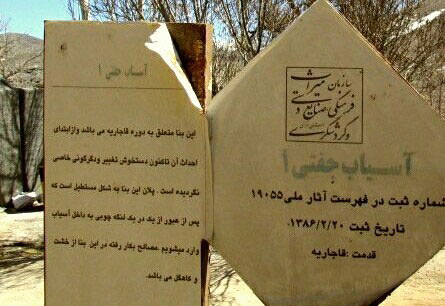 آسیاب جفتی ۱
این بنا متعلق به دوره قاجاریه می باشد وازابتدای
احداث آن تاکنون دستخوش تغییر ودگرگونی خاصی
نگردیده است . پلان این بنا به شکل مستطیل است که
پس از عبور از یک در یک لنگه چوبی به داخل آسیاب
وارد میشویم .مصالح بکار رفته در این بنا از خشت
و کاهگل می باشد.
سازمان میراث
فرهنگی،صنایع دستی
وگردشگری
آسیاب جفتی ۱
شماره ثبت در فهرست آثار ملی ۱۹۰۵۵
تاریخ ثبت ۱۳۸۶/۲/۲۰.
قدمت :قاجاریه